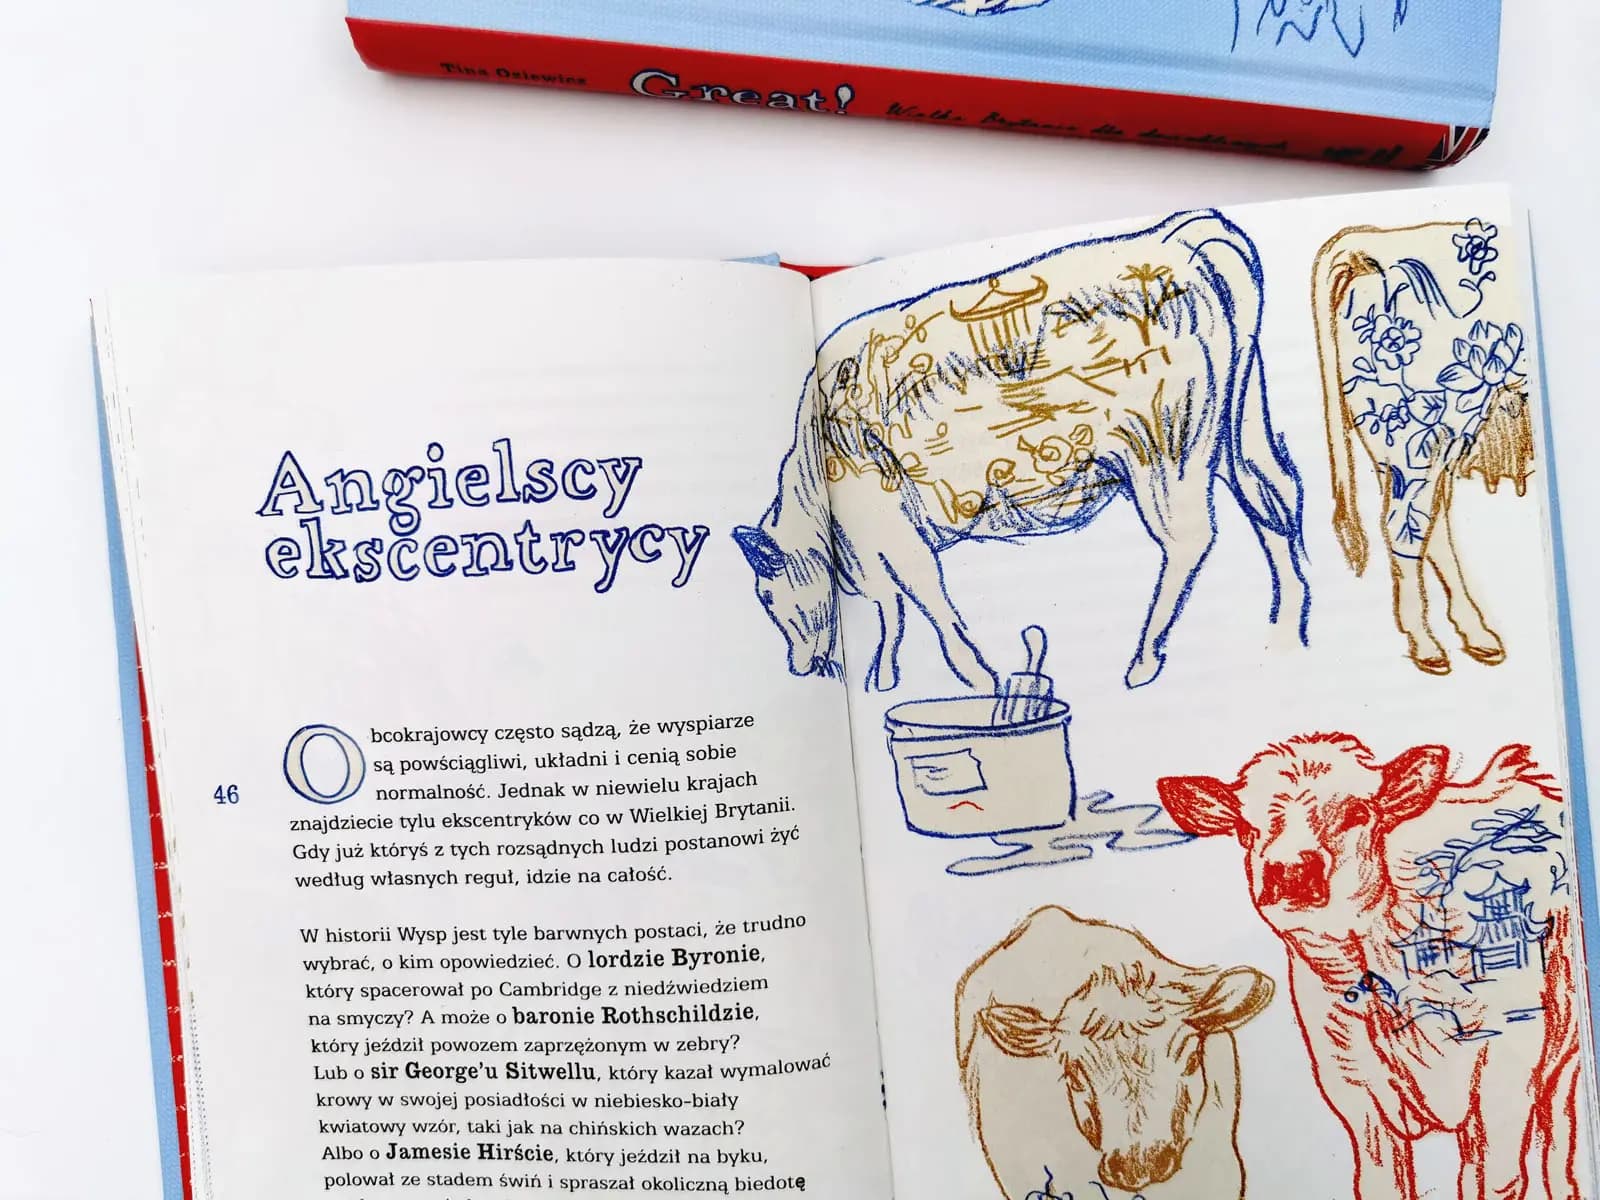 Tina Oziewicz Great! Wielka Brytania dla dociekliwych
Angielscy
ekscentrycy
Obcokrajowcy często sądzą, że wyspiarze
są powściągliwi, układni i cenią sobie
normalność. Jednak w niewielu krajach
46
znajdziecie tylu ekscentryków co w Wielkiej Brytanii.
Gdy już któryś z tych rozsądnych ludzi postanowi żyć
według własnych reguł, idzie na całość.
W historii Wysp jest tyle barwnych postaci, że trudno
wybrać, o kim opowiedzieć. O lordzie Byronie,
który spacerował po Cambridge z niedźwiedziem
na smyczy? A może o baronie Rothschildzie,
który jeździł powozem zaprzężonym w zebry?
Lub o sir George’u Sitwellu, który kazał wymalować
krowy w swojej posiadłości w niebiesko-biały
kwiatowy wzór, taki jak na chińskich wazach?
Albo o Jamesie Hirście, który jeździł na byku,
polował ze stadem świń i spraszał okoliczną biedotę